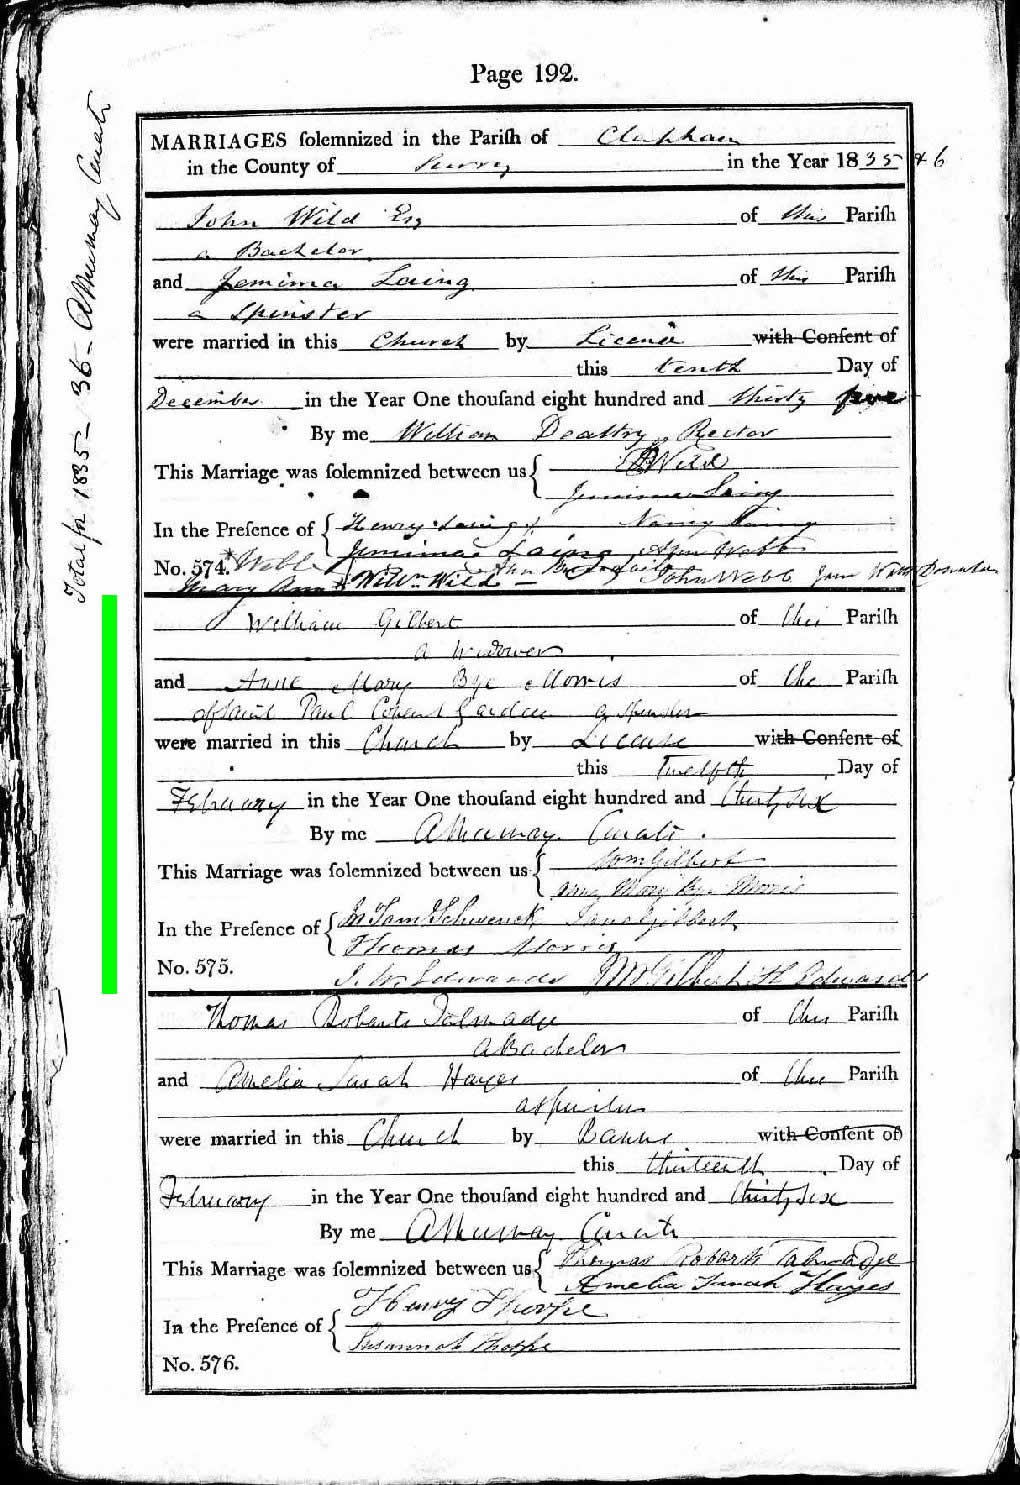 Page 192.
MARRIAGES ſolemnized in the Pariſh of Clapham
in the County of Surry in the Year 1835 & 6
John Wild Esq of this Pariſh
a Bachelor
and Jemima Laing of this Pariſh
a Spinster
were married in this Church by Licence with Conſent of
this tenth Day of
December in the Year One thouſand eight hundred and thirty five
By me William Dealtry Rector
This Marriage was ſolemnized between us { Wild
Jemima Laing
In the Preſence of { Henry Laing Nancy Laing
Jemima Laing Webb
No. 574. Webb
Mary Ann Willm Wild John Webb
William Gilbert of this Pariſh
a Widower
and Anne Mary Bye Morris of the Pariſh
of Saint Paul Covent Garden a Spinster
were married in this Church by Licence with Conſent of
this Twelfth Day of
February in the Year One thouſand eight hundred and thirty six
By me Curate.
This Marriage was ſolemnized between us { Wm Gilbert
Anne Mary Bye Morris
In the Preſence of { Schwenck Gilbert
Thomas Morris
No. 575. J. W. Edwards M Gilbert H Edwards
Thomas Roberts Talmadge of this Pariſh
a Bachelor
and Amelia Sarah Hayes of this Pariſh
a Spinster
were married in this Church by Banns with Conſent of
this thirteenth Day of
February in the Year One thouſand eight hundred and thirty six
By me Curate
This Marriage was ſolemnized between us { Thomas Roberts Talmadge
Amelia Sarah Hayes
In the Preſence of { Henry Thorpe
Susannah Thorpe
No. 576.
Total for 1835-36 - Curate